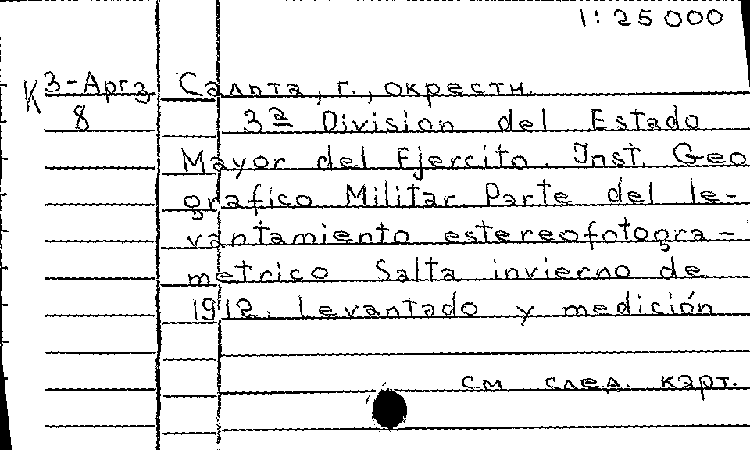 1:25000
К 3-Арг3 Салта, г., окрестн.
8 3ª Division del Estado
Mayor del Ejercito. Inst. Geo
grafico Militar Parte del le-
vantamiento estereofotogra-
metrico Salta invierno de
1912. Levantado y medición
см след. карт.